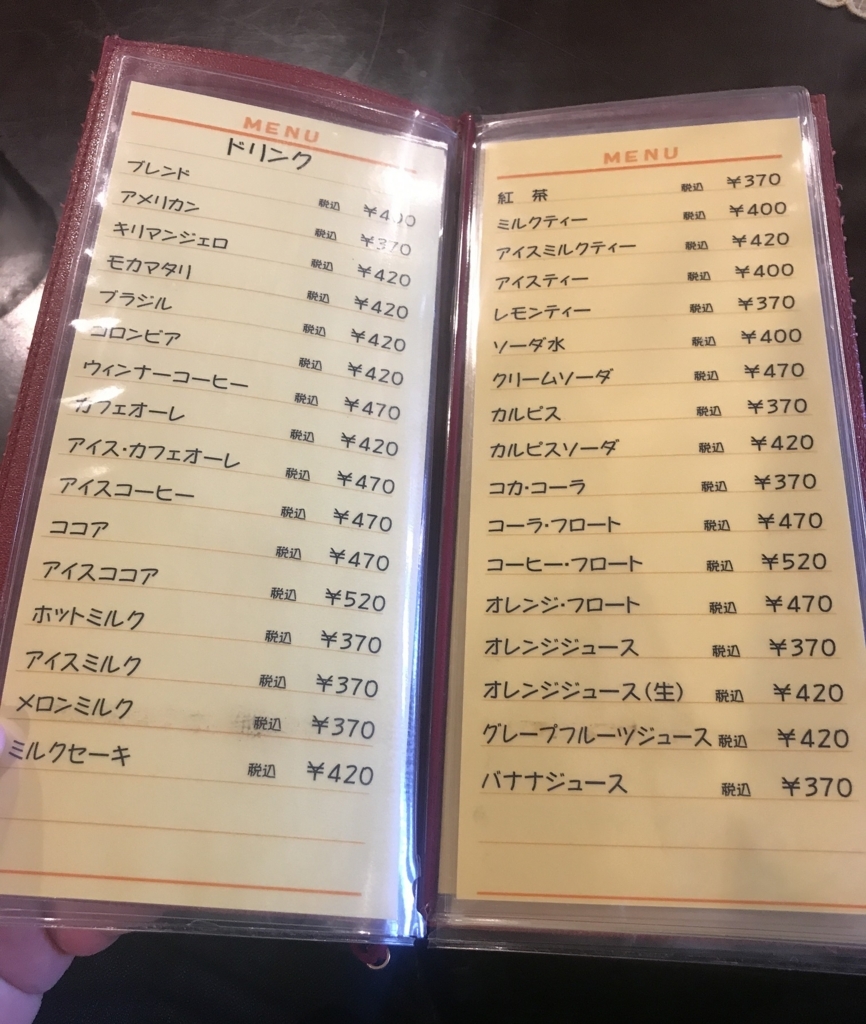 MENU
ドリンク
ブレンド 税込 ¥400
アメリカン 税込 ¥370
キリマンジェロ 税込 ¥420
モカマタリ 税込 ¥420
ブラジル 税込 ¥420
コロンビア 税込 ¥420
ウィンナーコーヒー 税込 ¥470
カフェオーレ 税込 ¥420
アイス・カフェオーレ 税込 ¥470
アイスコーヒー 税込 ¥470
ココア 税込 ¥470
アイスココア 税込 ¥520
ホットミルク 税込 ¥370
アイスミルク 税込 ¥370
メロンミルク 税込 ¥370
ミルクセーキ 税込 ¥420
MENU
紅 茶 税込 ¥370
ミルクティー 税込 ¥400
アイスミルクティー 税込 ¥420
アイスティー 税込 ¥400
レモンティー 税込 ¥370
ソーダ水 税込 ¥400
クリームソーダ 税込 ¥470
カルピス 税込 ¥370
カルピスソーダ 税込 ¥420
コカ・コーラ 税込 ¥370
コーラ・フロート 税込 ¥470
コーヒー・フロート 税込 ¥520
オレンジ・フロート 税込 ¥470
オレンジジュース 税込 ¥370
オレンジジュース(生) 税込 ¥420
グレープフルーツジュース 税込 ¥420
バナナジュース 税込 ¥370